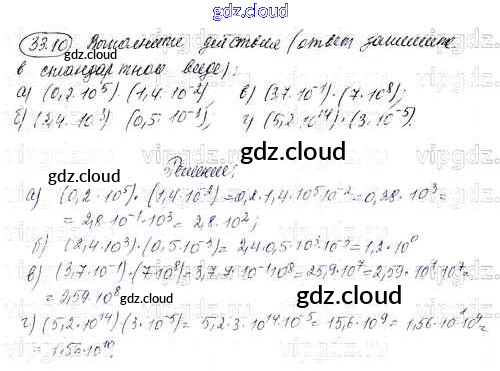 gdz.cloud
33.10 Выполните действия (ответ запишите
в стандартном виде):
а) (0,2·10⁵)·(1,4·10⁻²), в) (3,7·10⁻¹)·(7·10⁸);
б) (2,4·10³) (0,5·10⁻³); г) (5,2·10¹⁴)·(3·10⁻⁵).
gdz.cloud
gdz.cloud
Решение:
а) (0,2·10⁵)·(1,4·10⁻²)=0,2·1,4·10⁵10⁻²=0,28·10³=
=2,8·10⁻¹·10³=2,8·10²;
б) (2,4·10³)·(0,5·10⁻³)=2,4·0,5·10³·10⁻³=1,2·10⁰
в) (3,7·10⁻¹)·(7·10⁸)=3,7·7·10⁻¹10⁸=25,9·10⁷=2,59·10¹·10⁷=
=2,59·10⁸
gdz.cloud
gdz.cloud
г) (5,2·10¹⁴)(3·10⁻⁵)=5,2·3·10¹⁴·10⁻⁵=15,6·10⁹=1,56·10¹·10⁹=
=1,56·10¹⁰.
gdz.cloud